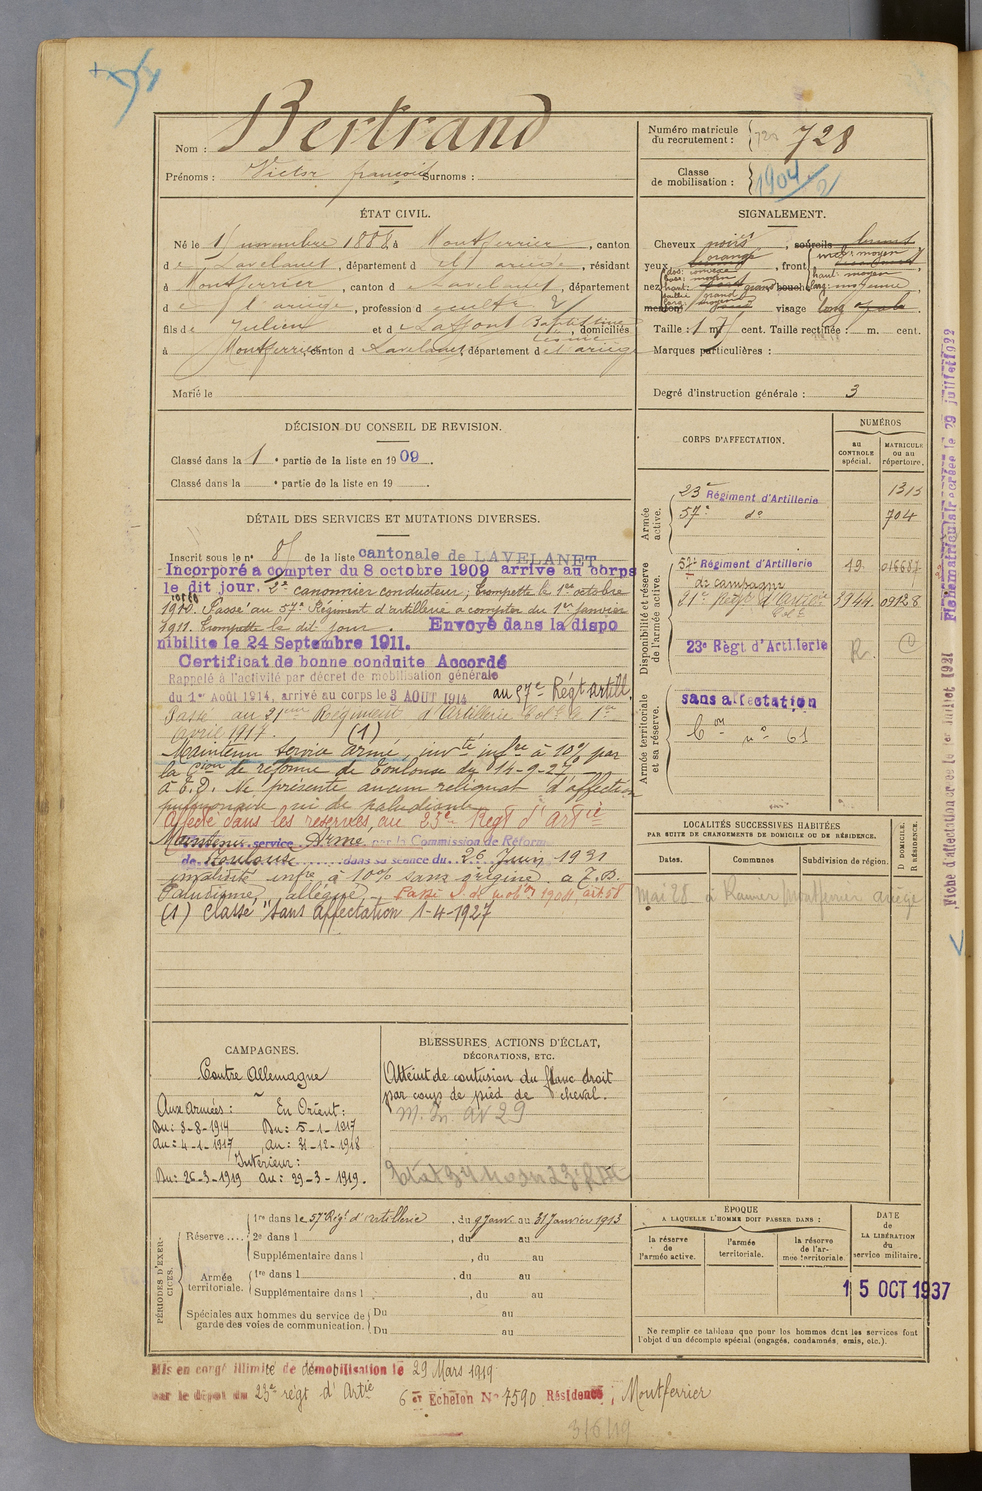 Nom : Bertrand
Prénoms : Victor françois Surnoms :
Numéro matricule du recrutement : 728
Classe de mobilisation : 1904/2
ÉTAT CIVIL.
Né le novembre 1888, à Montferrier, canton
de Lavelanet, département de l'ariège, résidant
à Montferrier, canton de Lavelanet, département
de l'ariège, profession de cultr
fils de Julien et de Laffont Baptistine, domiciliés
à Montferrier, canton de Lavelanet, département de l'ariège
Marié le
SIGNALEMENT.
Cheveux noirs, sourcils
yeux orangé, front incl: moyen
haut: moyen
larg: moyenne
nez dos: convexe
base: moyen
haut:
saillie grand
larg: moyen
bouche
menton visage long
Taille : 1 m cent. Taille rectifiée : m. cent.
Marques particulières :
Degré d'instruction générale : 3
DÉCISION DU CONSEIL DE REVISION.
Classé dans la 1e partie de la liste en 1909.
Classé dans la e partie de la liste en 19 .
DÉTAIL DES SERVICES ET MUTATIONS DIVERSES.
Inscrit sous le n° 8 de la liste cantonale de LAVELANET
Incorporé a compter du 8 octobre 1909 arrivé au corps
le dit jour. 2e canonnier conducteur, Trompette le 1er octobre
1910. Passé au 57e Régiment d'artillerie a compter du 1er janvier
1911. Trompette le dit jour. Envoyé dans la dispo
nibilité le 24 Septembre 1911.
Certificat de bonne conduite Accordé
Rappelé à l'activité par décret de mobilisation générale
du 1er Août 1914, arrivé au corps le 3 AOUT 1914 au 57e Régt artill.
Passé au 21eme Régiment d'Artillerie Cole le 1er
Avril 1917. (1)
Maintenu service armé, invté infre à 10% par
la Cion de réforme de Toulouse du 14-9-27
à T.D. Ne présente aucun reliquat d'affection
pulmonaire ni de paludisme
Affecté dans les réserves, au 23e Régt d'Artie
Maintenu service Armé par la Commission de Réforme
de Toulouse dans sa séance du 26 Juin 1931
invalidité infre à 10% sans origine à T.D.
Paludisme allégué. Passé Cl de mobon 1904, art. 58
(1) Classé "Sans affectation 1-4-1927
CORPS D'AFFECTATION.
NUMÉROS
au CONTROLE spécial.
MATRICULE ou au répertoire.
Armée active.
23e Régiment d'Artillerie 1315
57e do 704
Disponibilité et réserve de l'armée active.
57e Régiment d'Artillerie 49
de campagne
21e Régt d'Artie Cole 3944 09128
23e Régt d'Artillerie R. C
Armée territoriale et sa réserve.
sans affectation
Con n° 61
LOCALITÉS SUCCESSIVES HABITÉES
PAR SUITE DE CHANGEMENTS DE DOMICILE OU DE RÉSIDENCE.
Dates. Communes Subdivision de région. D DOMICILE. R RÉSIDENCE.
Mai 28 à Montferrier ariège
CAMPAGNES.
Contre Allemagne
Aux armées : En Orient :
Du : 3-8-1914 Du : 5-1-1917
au : 4-1-1917 au : 31-12-1918
Intérieur :
Du : 26-3-1919 au : 29-3-1919.
BLESSURES, ACTIONS D'ÉCLAT,
DÉCORATIONS, ETC.
Atteint de contusion du flanc droit
par coups de pied de cheval.
PÉRIODES D'EXERCICES.
Réserve.... 1re dans le 57e Régt d'artillerie, du 9 janv. au 31 janvier 1913
2e dans l , du au
Supplémentaire dans l , du au
Armée territoriale. 1re dans l , du au
Supplémentaire dans l , du au
Spéciales aux hommes du service de garde des voies de communication. Du au
Du au
ÉPOQUE
A LAQUELLE L'HOMME DOIT PASSER DANS :
la réserve de l'armée active.
l'armée territoriale.
la réserve de l'armée territoriale.
DATE DE LA LIBÉRATION du service militaire.
15 OCT 1937
Ne remplir ce tableau que pour les hommes dont les services font
l'objet d'un décompte spécial (engagés, condamnés, omis, etc.).
Mis en congé illimité de démobilisation le 29 Mars 1919
par le dépôt du 23e régt d'Artie 6e Echelon N° 7590 Résidence, Montferrier
3/6/19
Fiche d'affectation créée le 1er juillet 1921 Fiche matriculaire créée le 29 juillet 1922